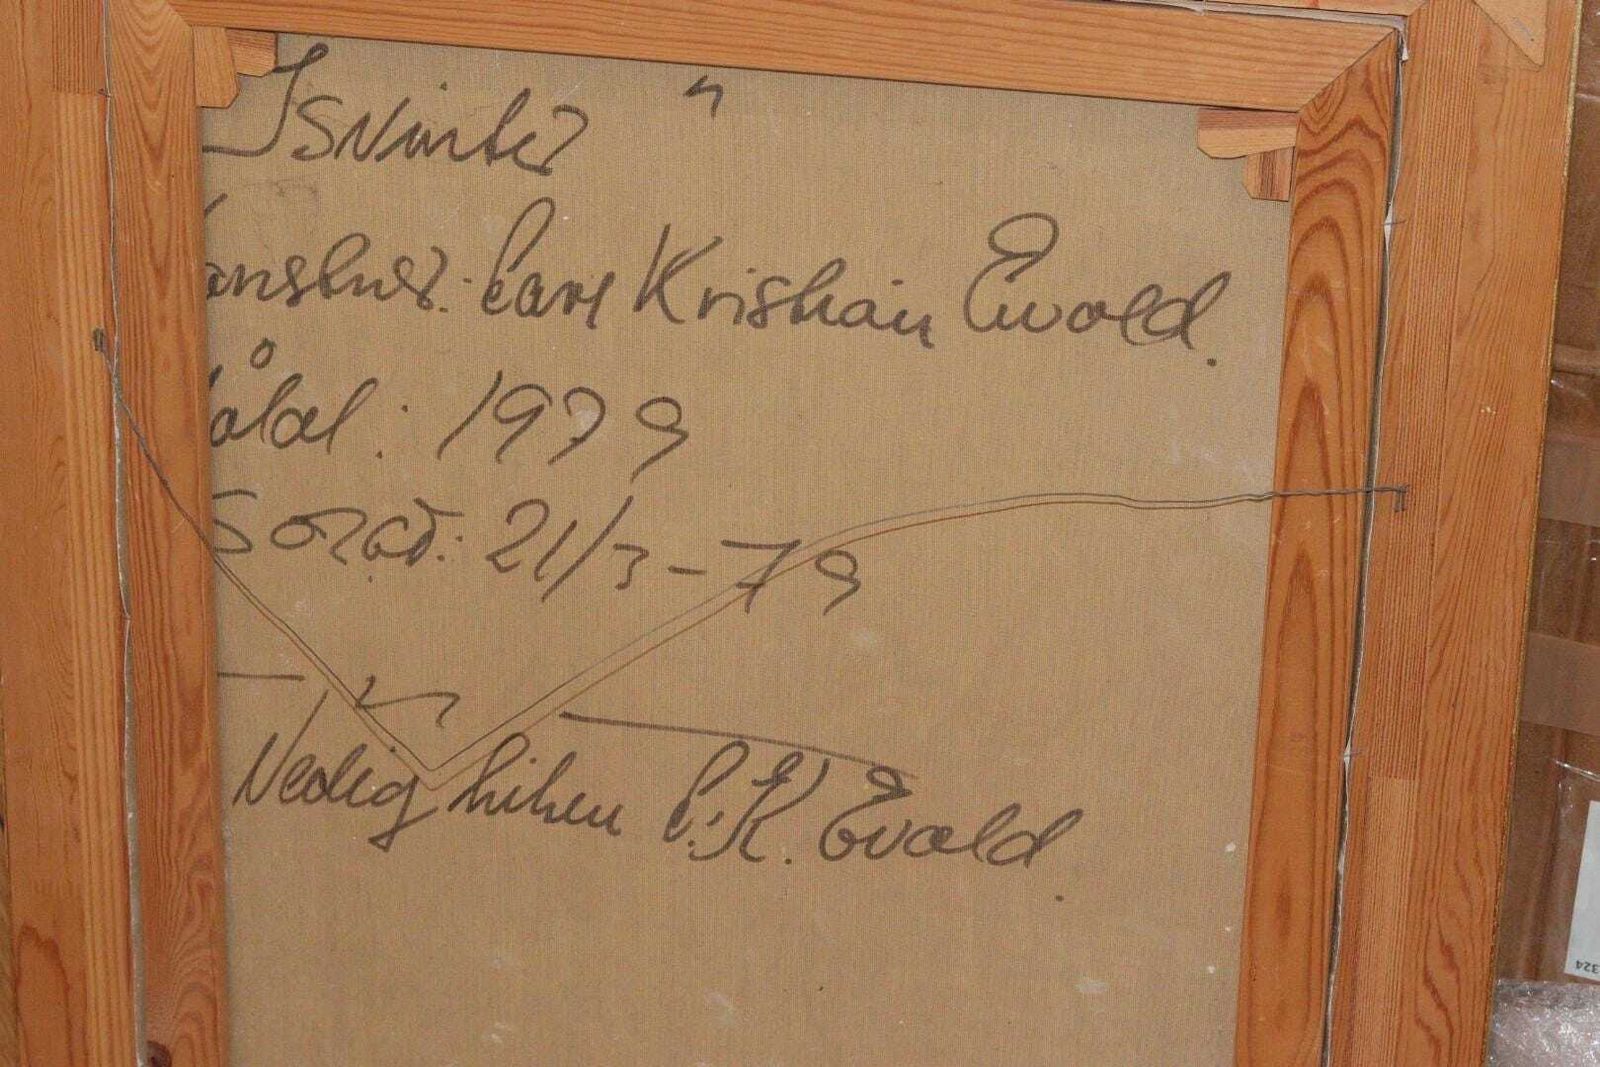 Isvinter "
anstner: Carl Kristian Ewald.
ålal: 1979
Sorgåd: 21/3-79
Venlig hilsen C.K. Ewald.
324